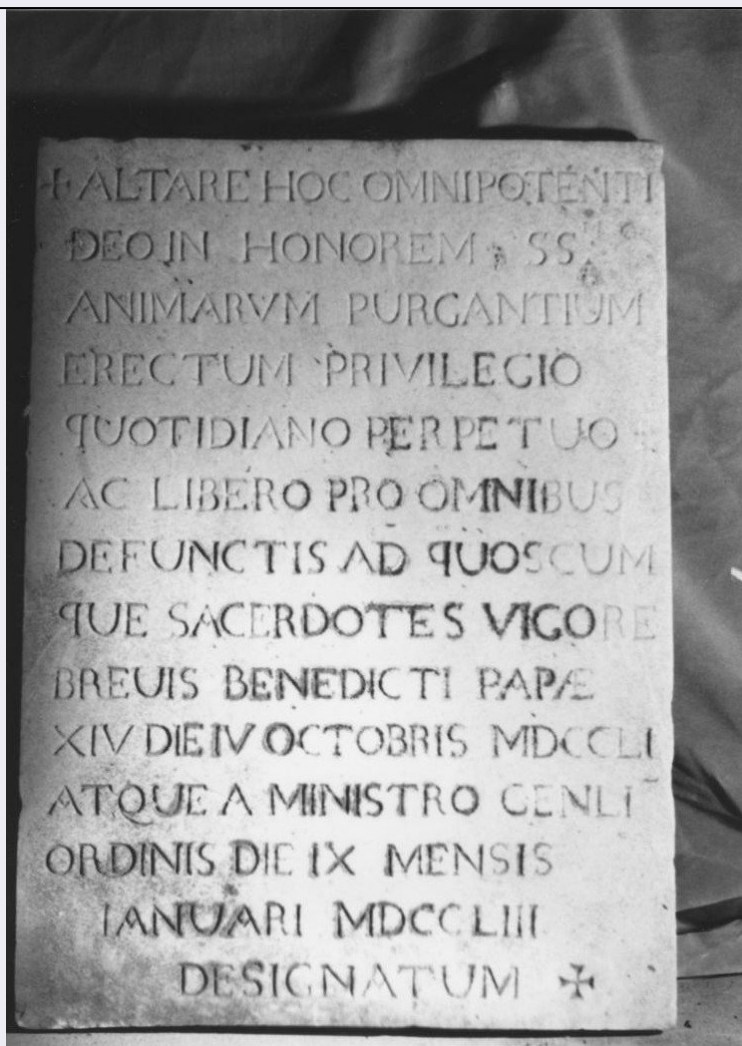 ✝ ALTARE HOC OMNIPOTENTI
DEO IN HONOREM SS.
ANIMARVM PURGANTIUM
ERECTUM PRIVILEGIO
QUOTIDIANO PERPETUO
AC LIBERO PRO OMNIBUS
DEFUNCTIS AD QUOSCUM
QUE SACERDOTES VIGORE
BREUIS BENEDICTI PAPÆ
XIV DIE IV OCTOBRIS MDCCLI
ATQUE A MINISTRO GENLI
ORDINIS DIE IX MENSIS
IANUARI MDCCLIII
DESIGNATUM ✠